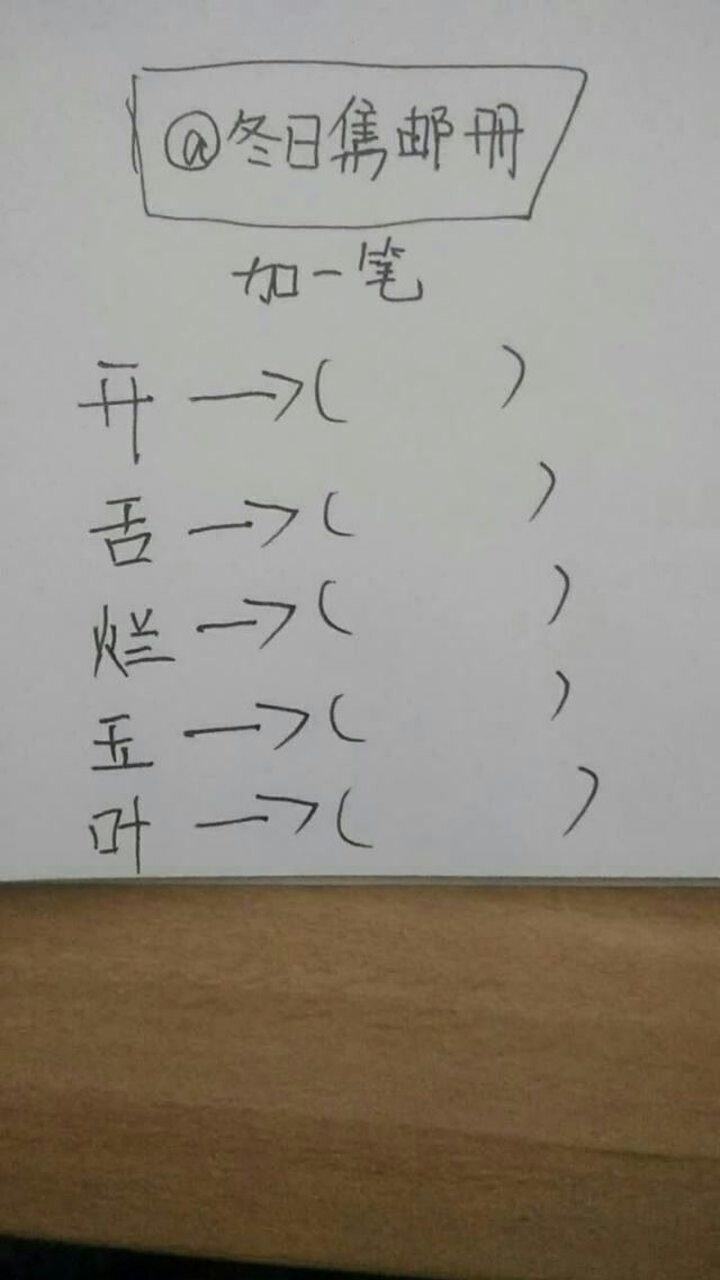 @冬日集邮册
加一笔
开→( )
舌→( )
烂→( )
→( )
叶→( )